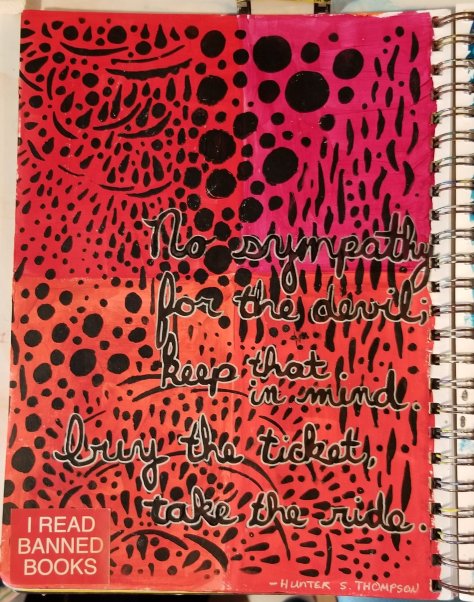 No sympathy
for the devil;
keep that
in mind.
buy the ticket,
take the ride.
I READ
BANNED
BOOKS
- HUNTER S. THOMPSON